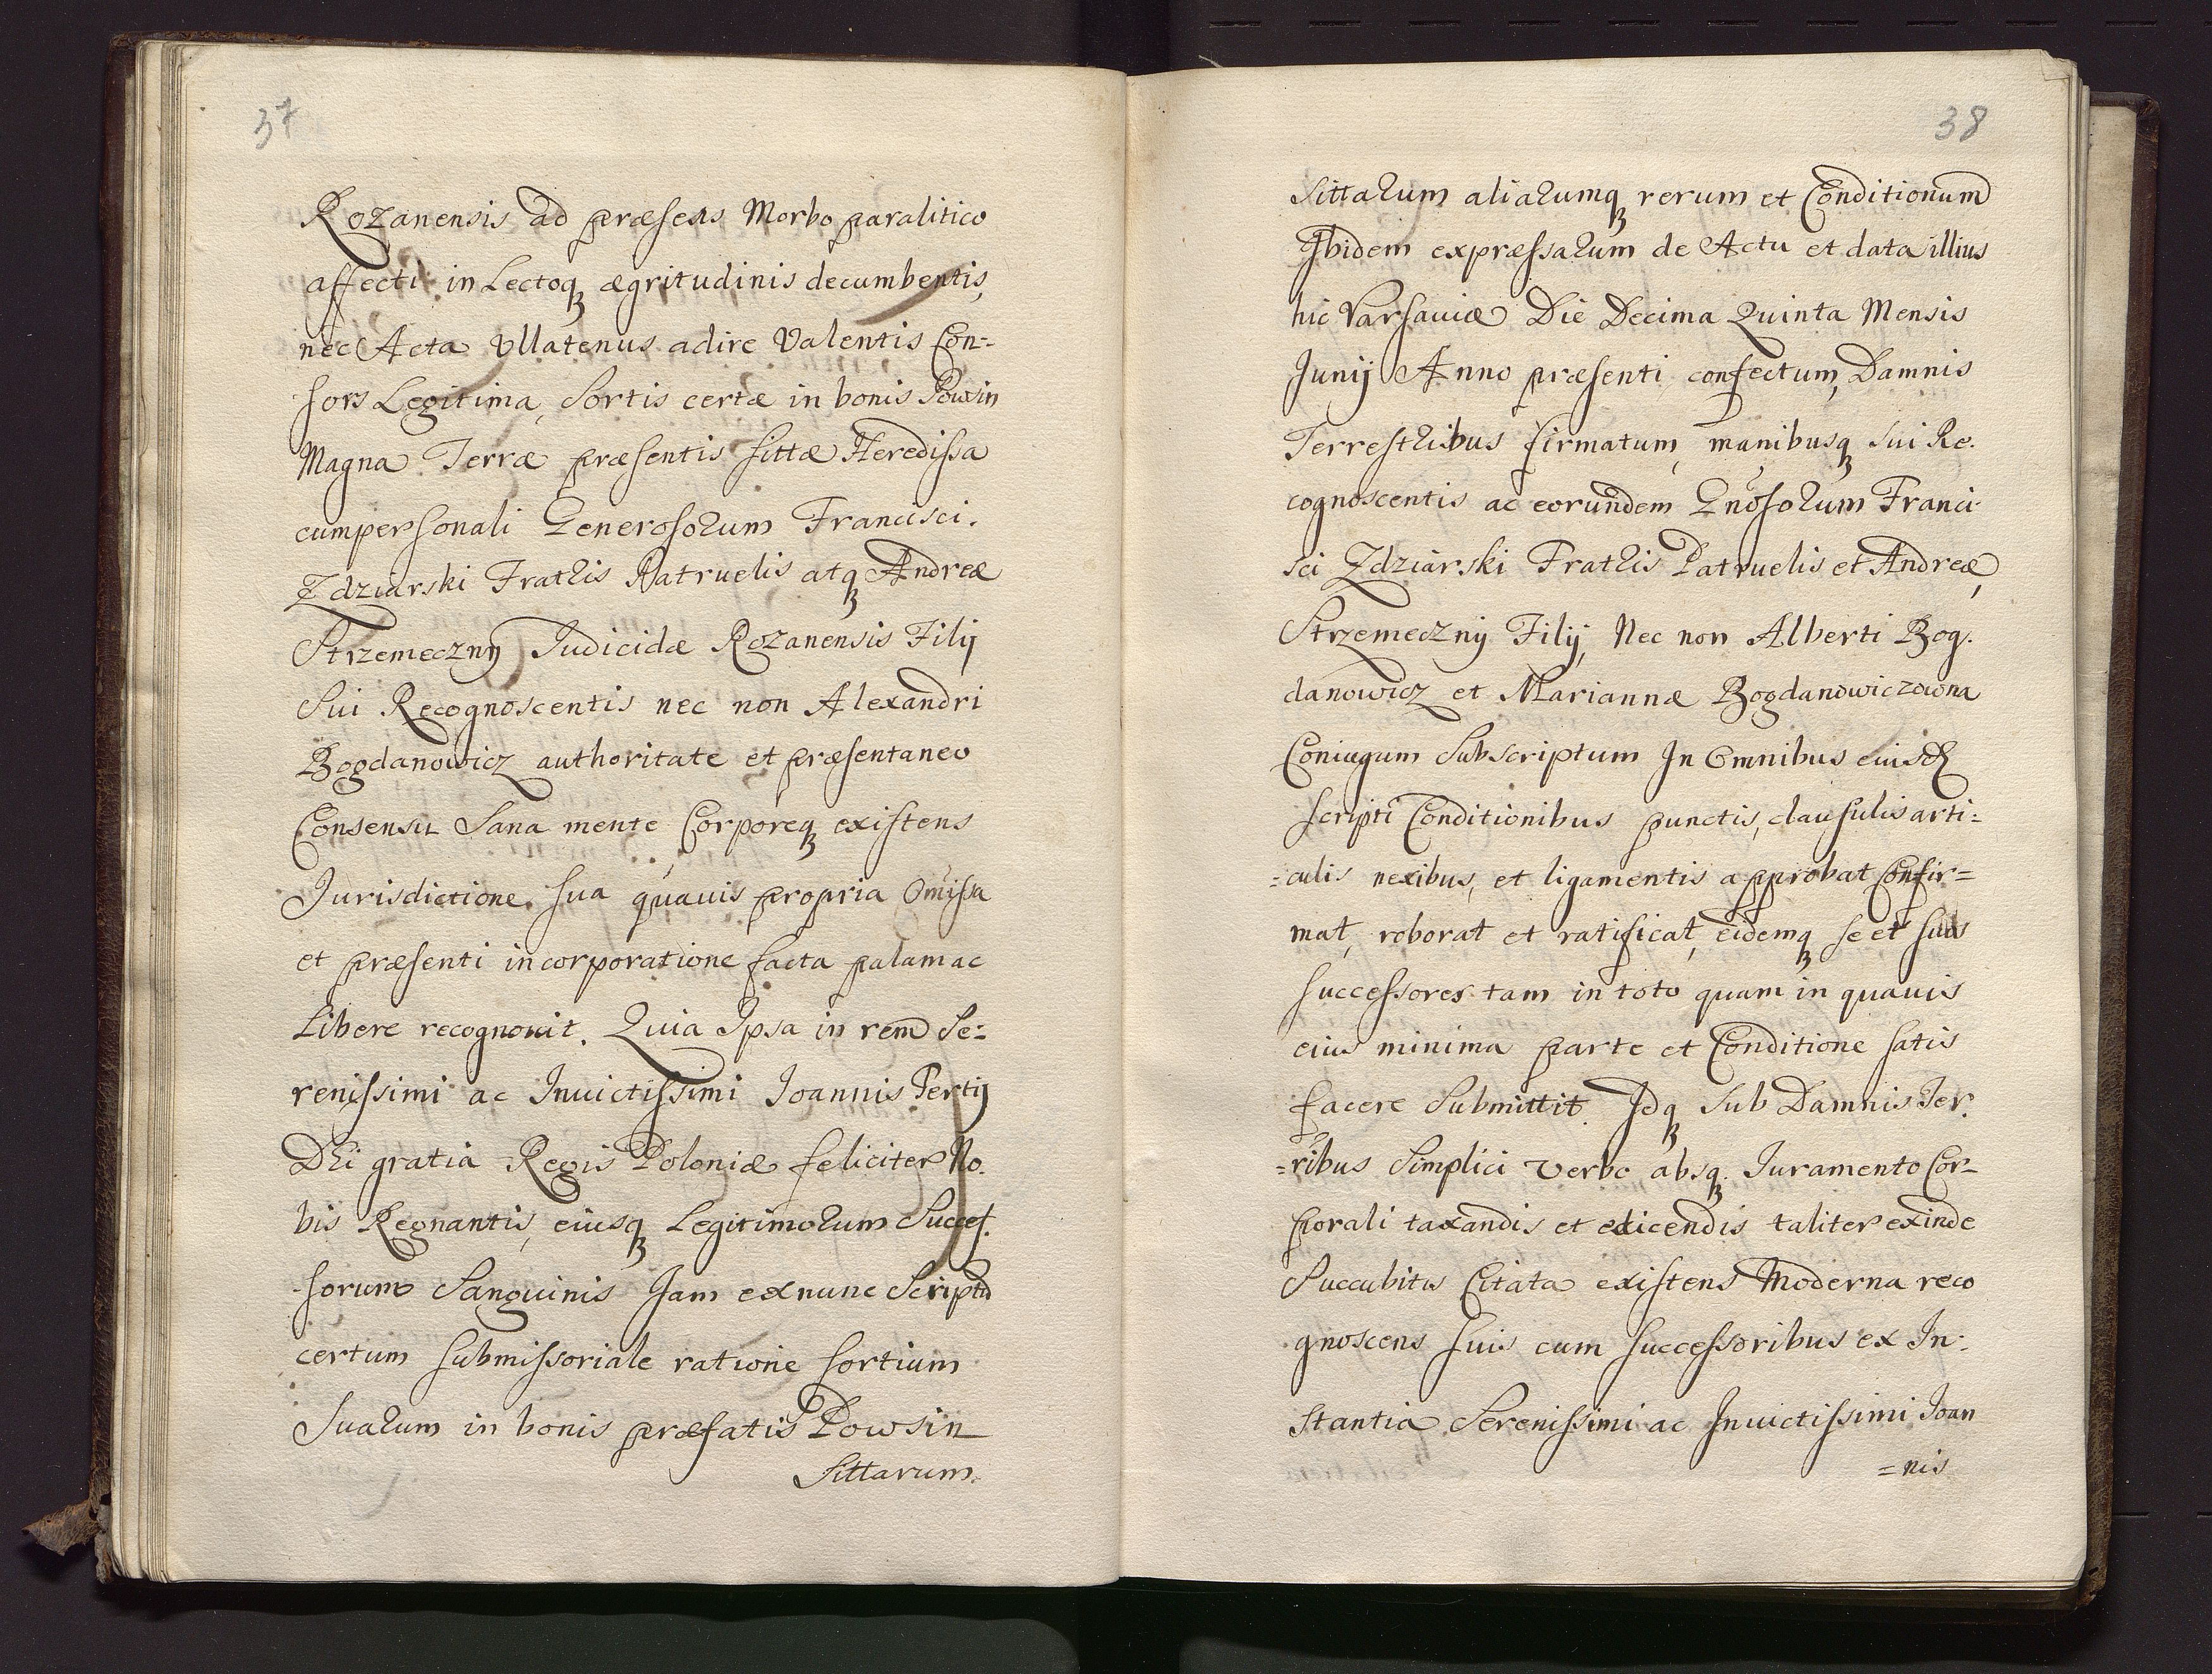 37
Rozanensis ad præsens Morbo paralitico
affecti in Lectoq₃ ægritudinis decumbentis,
nec Acta Ullatenus adire Valentis Con=
sors Legitima, Sortis certæ in bonis Powsin
Magna Terræ præsentis sittæ Heredissa
cumpersonali Generosorum Francisci.
Zdziarski Fratris Patruelis atq₃ Andreæ
Strzemeczny Judicidæ Rozanensis Filij
Sui Recognoscentis nec non Alexandri
Bogdanowicz authoritate et præsentaneo
Consensu Sana mente Corporeq₃ existens
Jurisdictione sua quavis propria Omissa
et præsenti incorporatione facta palam ac
Libere recognovit. Quia Ipsa in rem Se=
renissimi ac Invictissimi Joannis Tertij
DEi gratia Regis Poloniæ feliciter No.
bis Regnantis, eiusq₃ Legitimorum Succes.
sorum Sanguinis Jam exnunc Scriptu
certum submissoriale ratione sortium
Suarum in bonis præfatis Powsin
Sittarum.
38
Sittarum aliarumq₃ rerum et Conditionum
Ibidem expræssarum de Actu et data illius
hic Varsaviæ Die Decima Quinta Mensis
Junij Anno præsenti confectum, Damnis
Terrestribus firmatum, manibusq₃ Sui Re.
cognoscentis ac eorundem Gnosorum Franci.
sci Zdziarski Fratris Patruelis et Andreæ,
Strzemeczny Filij, Nec non Alberti Bog.
danowicz et Mariannæ Bogdanowiczowna
Coniugum Subscriptum In Omnibus eiusd
scripti Conditionibus punctis, clausulis arti=
=culis nexibus, et ligamentis approbat Confir=
mat, roborat et ratificat, eidemq₃ se et suos
successores tam in toto quam in quavis
eius minima parte et Conditione satis
facere Submittit. Idq₃ Sub Damnis Ter.
=ribus Simplici verbo absq₃. Juramento Cor=
porali taxandis et edicendis taliter exinde
Succubitu Citata existens Moderna reco
gnoscens suis cum successoribus ex In.
stantia Serenissimi ac Invictissimi Joan
=nis